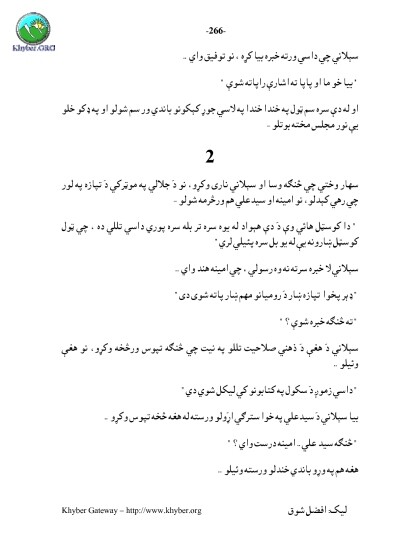 Khyber.ORG
-266-
سېلاني چي داسي ورته خبره بيا کړه ، نو توفيق واي ..
" بيا خو ما او پاپا ته اشارې راپاته شوې "
او له دې سره سم ټول په خندا خندا په لاسي جوړ کېکونو باندي ورسم شولو او په ډکو خلو
يې نور مجلس مخته بوتلو ..
2
سهار وختي چي څنګه وسا او سېلاني ناری وکړو ، نو د جلالي په موټرکي د تپازه په لور
چي رهي کېدلو ، نو امينه او سيد علي هم ورڅرمه شولو ..
" دا کوسټل هائي وې د دې هېواد له يوه سره تر بله سره پوري داسي تللي ده ، چي ټول
کوسټل ښارونه يې له يو بل سره پېئيلي لري "
سېلاني لا خبره سرته نه وه رسولې ، چي امينه هند واي ..
" ډېر پخوا تپازه ښار د روميانو مهم ښار پاته شوی دی "
" ته څنګه خبره شوې ؟ "
سېلاني د هغې د ذهني صلاحيت تللو په نيت چي څنګه تپوس ورڅخه وکړو ، نو هغې
وئيلو ..
" داسي زموږ د سکول په کتابونو کي ليکل شوي دي "
بيا سېلاني د سيد علي په خوا سترګي اړولو ورسته له هغه څخه تپوس وکړو ..
" څنګه سيد علي .. امينه درست واي ؟ "
هغه هم په ورو باندي خندلو ورسته وئيلو ..
Khyber Gateway – http://www.khyber.org
ليک: افضل شوق